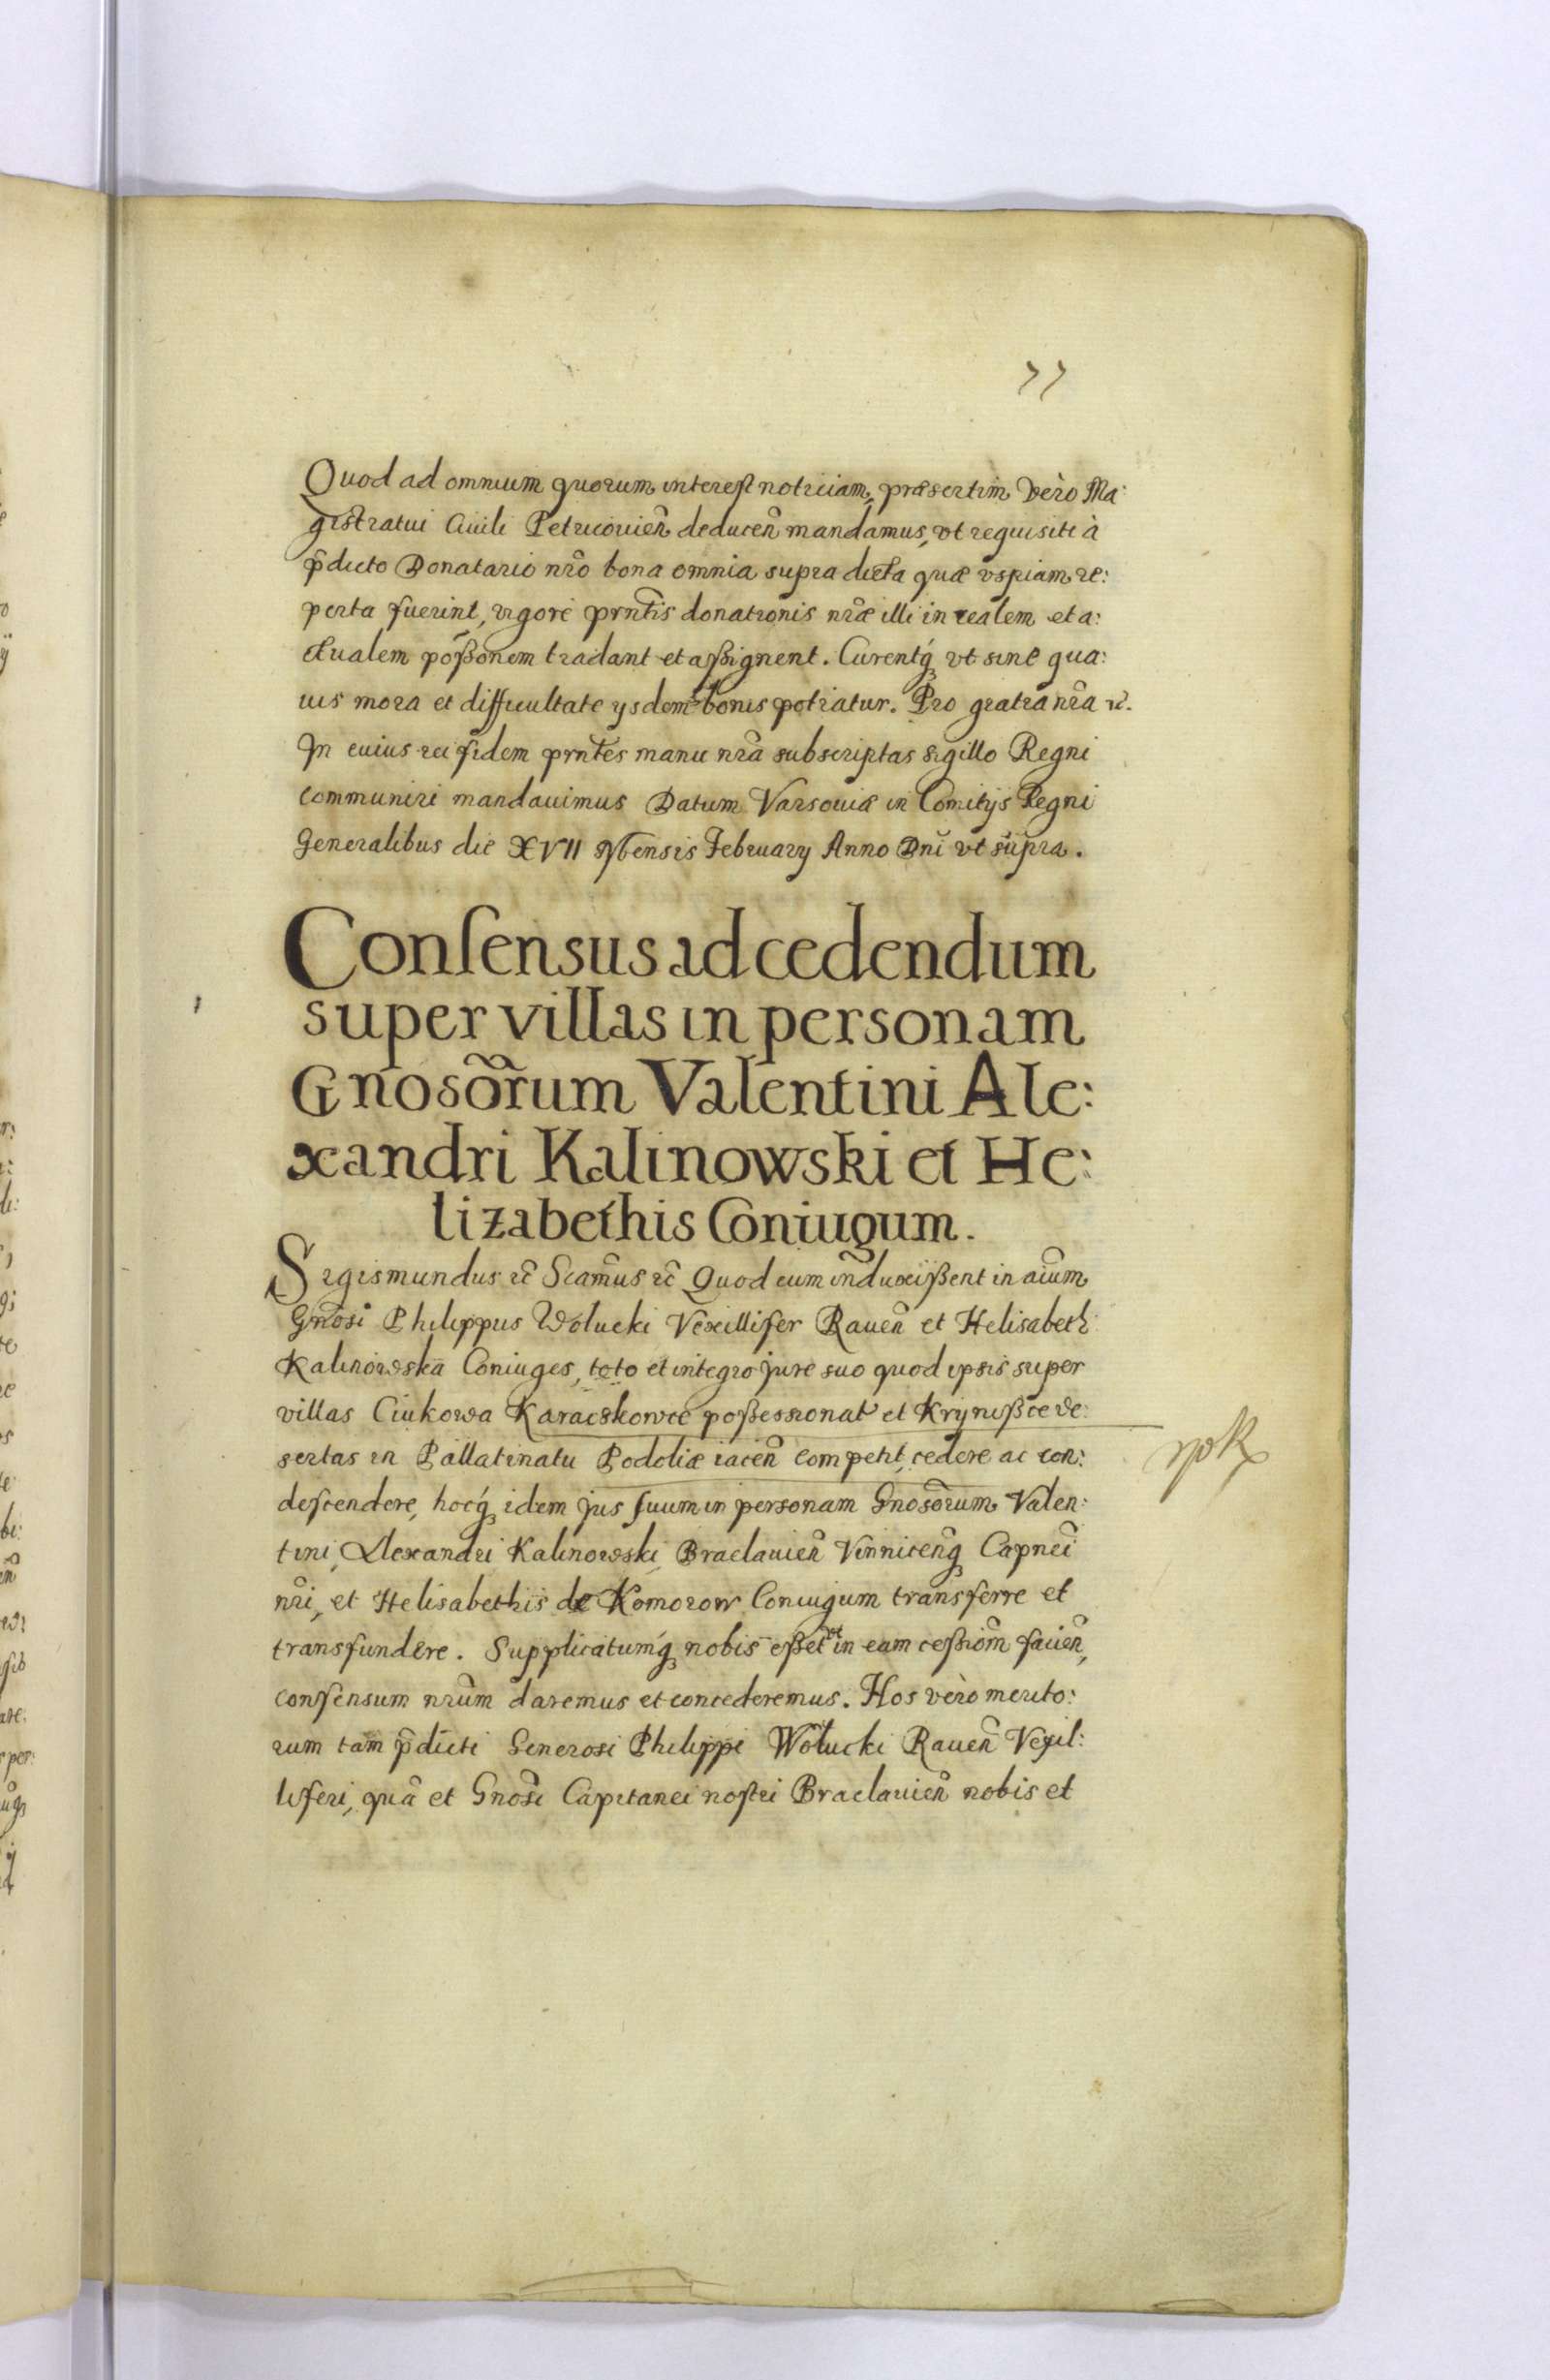 77
Quod ad omnium quorum interest notitiam, præsertim verò Ma:
gistratui Ciuili Petricouien̄ deducen̄ mandamus, vt requisiti à
p̄dicto Donatario nr̄o bona omnia supra dicta quæ vspiam re:
perta fuerint, vigore prn̄tis donationis nr̄æ illi in realem et a:
ctualem poss̄onem tradant et assignent. Curentq́ꝫ vt sine qua:
uis mora et difficultate ysdem bonis potiatur. Pro gratia nr̄a ꝛc.
In cuius rei fidem prn̄tes manu nr̄a subscriptas sigillo Regni
communiri mandauimus Datum Varsouiæ in Comitijs Regni
Generalibus die XVII Mensis February Anno Dn̄i vt supra.
Conſensus ad cedendum
super villas in personam
Gnosōrum Valentini Ale:
xandri Kalinowski et He:
lizabethis Coniugum.
Sigismundus ꝛc̄ Scam̄us ꝛc̄ Quod cum induxissent in aīum
Gn̄osi Philippus Wolucki Vexillifer Rauen̄ et Helisabeth
Kalinowska Coniuges, toto et integro jure suo quod ipsis super
villas Ciukowa Karaczkowce possessionat et Krynissce de:
sertas in Pallatinatu Podoliæ iacen̄ competit, cedere ac con:
descendere, hocq́ꝫ idem jus ſuum in personam Gnosōrum Valen:
tini, Alexandri Kalinowski, Braclauien̄ Vinnicen̄qꝫ Capn̄ei
nr̄i, et Helisabethis de Komorow Coniugum transferre et
transfundere. Supplicatumq́ꝫ nobis esset vt in eam cessiōm facien̄,
consensum nr̄um daremus et concederemus. Nos verò merito:
rum tam p̄dicti Generosi Philippi Wolucki Rauen̄ Vexil:
liferi, quā et Gn̄osi Capitanei nostri Braclauien̄ nobis et